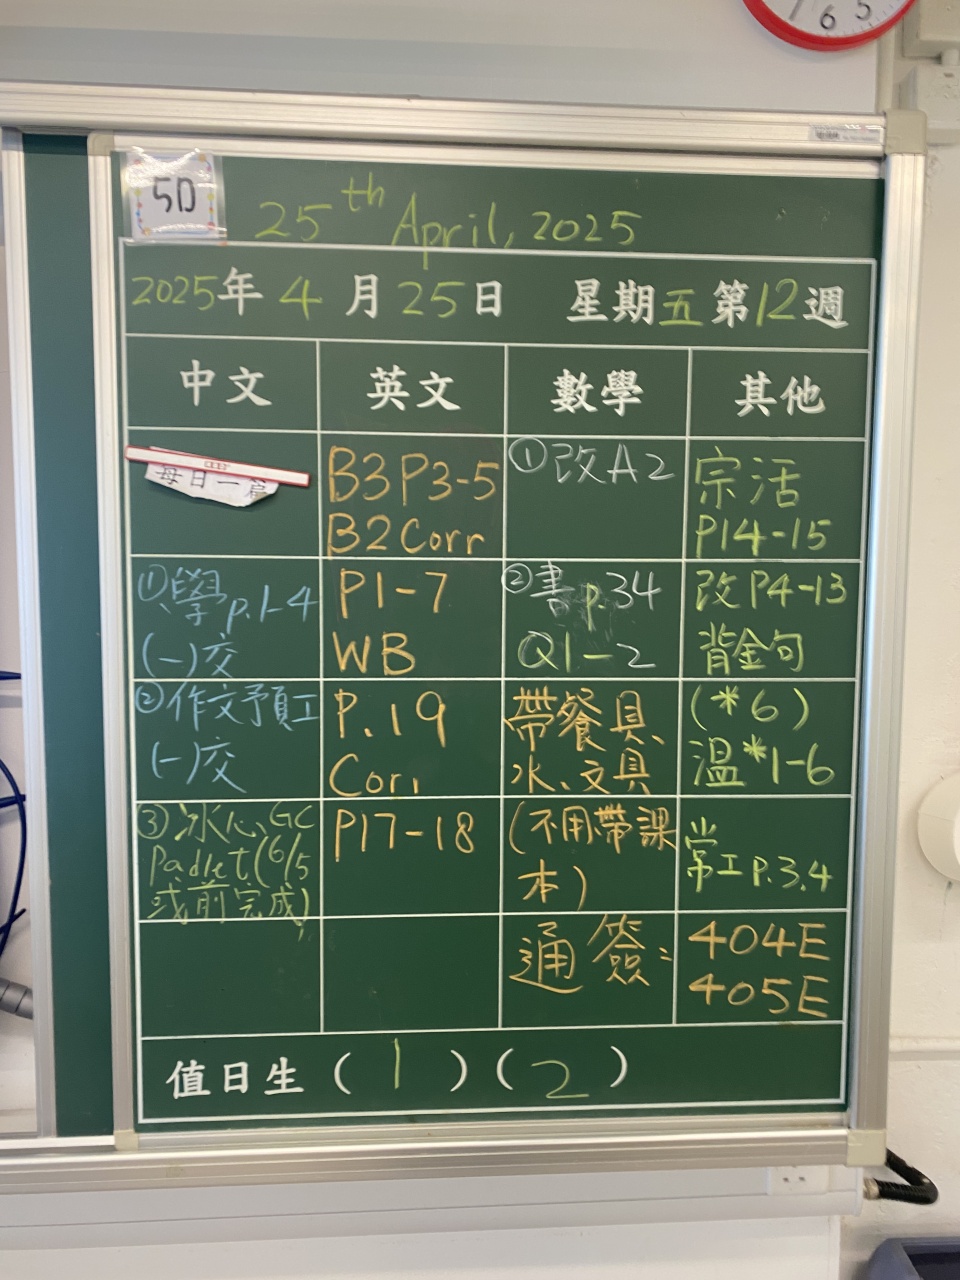 7 6 5
5D
25th April, 2025
2025年 4 月 25日 星期五 第12週
中文 英文 數學 其他
每日一篇
B3 P3-5
B2 Corr
①改A2
宗活
P14-15
①學p.1-4
(一)交
P1-7
WB
②書p.34
Q1-2
改P4-13
背金句
②作文予頁工
(一)交
P.19
Corr
帶餐具、
水、文具
(*6)
溫*1-6
③冰心、GC
Padlet(6/5
或前完成)
P17-18
(不用帶課
本)
常工p.3,4
通簽:
404E
405E
值日生 (1)(2)